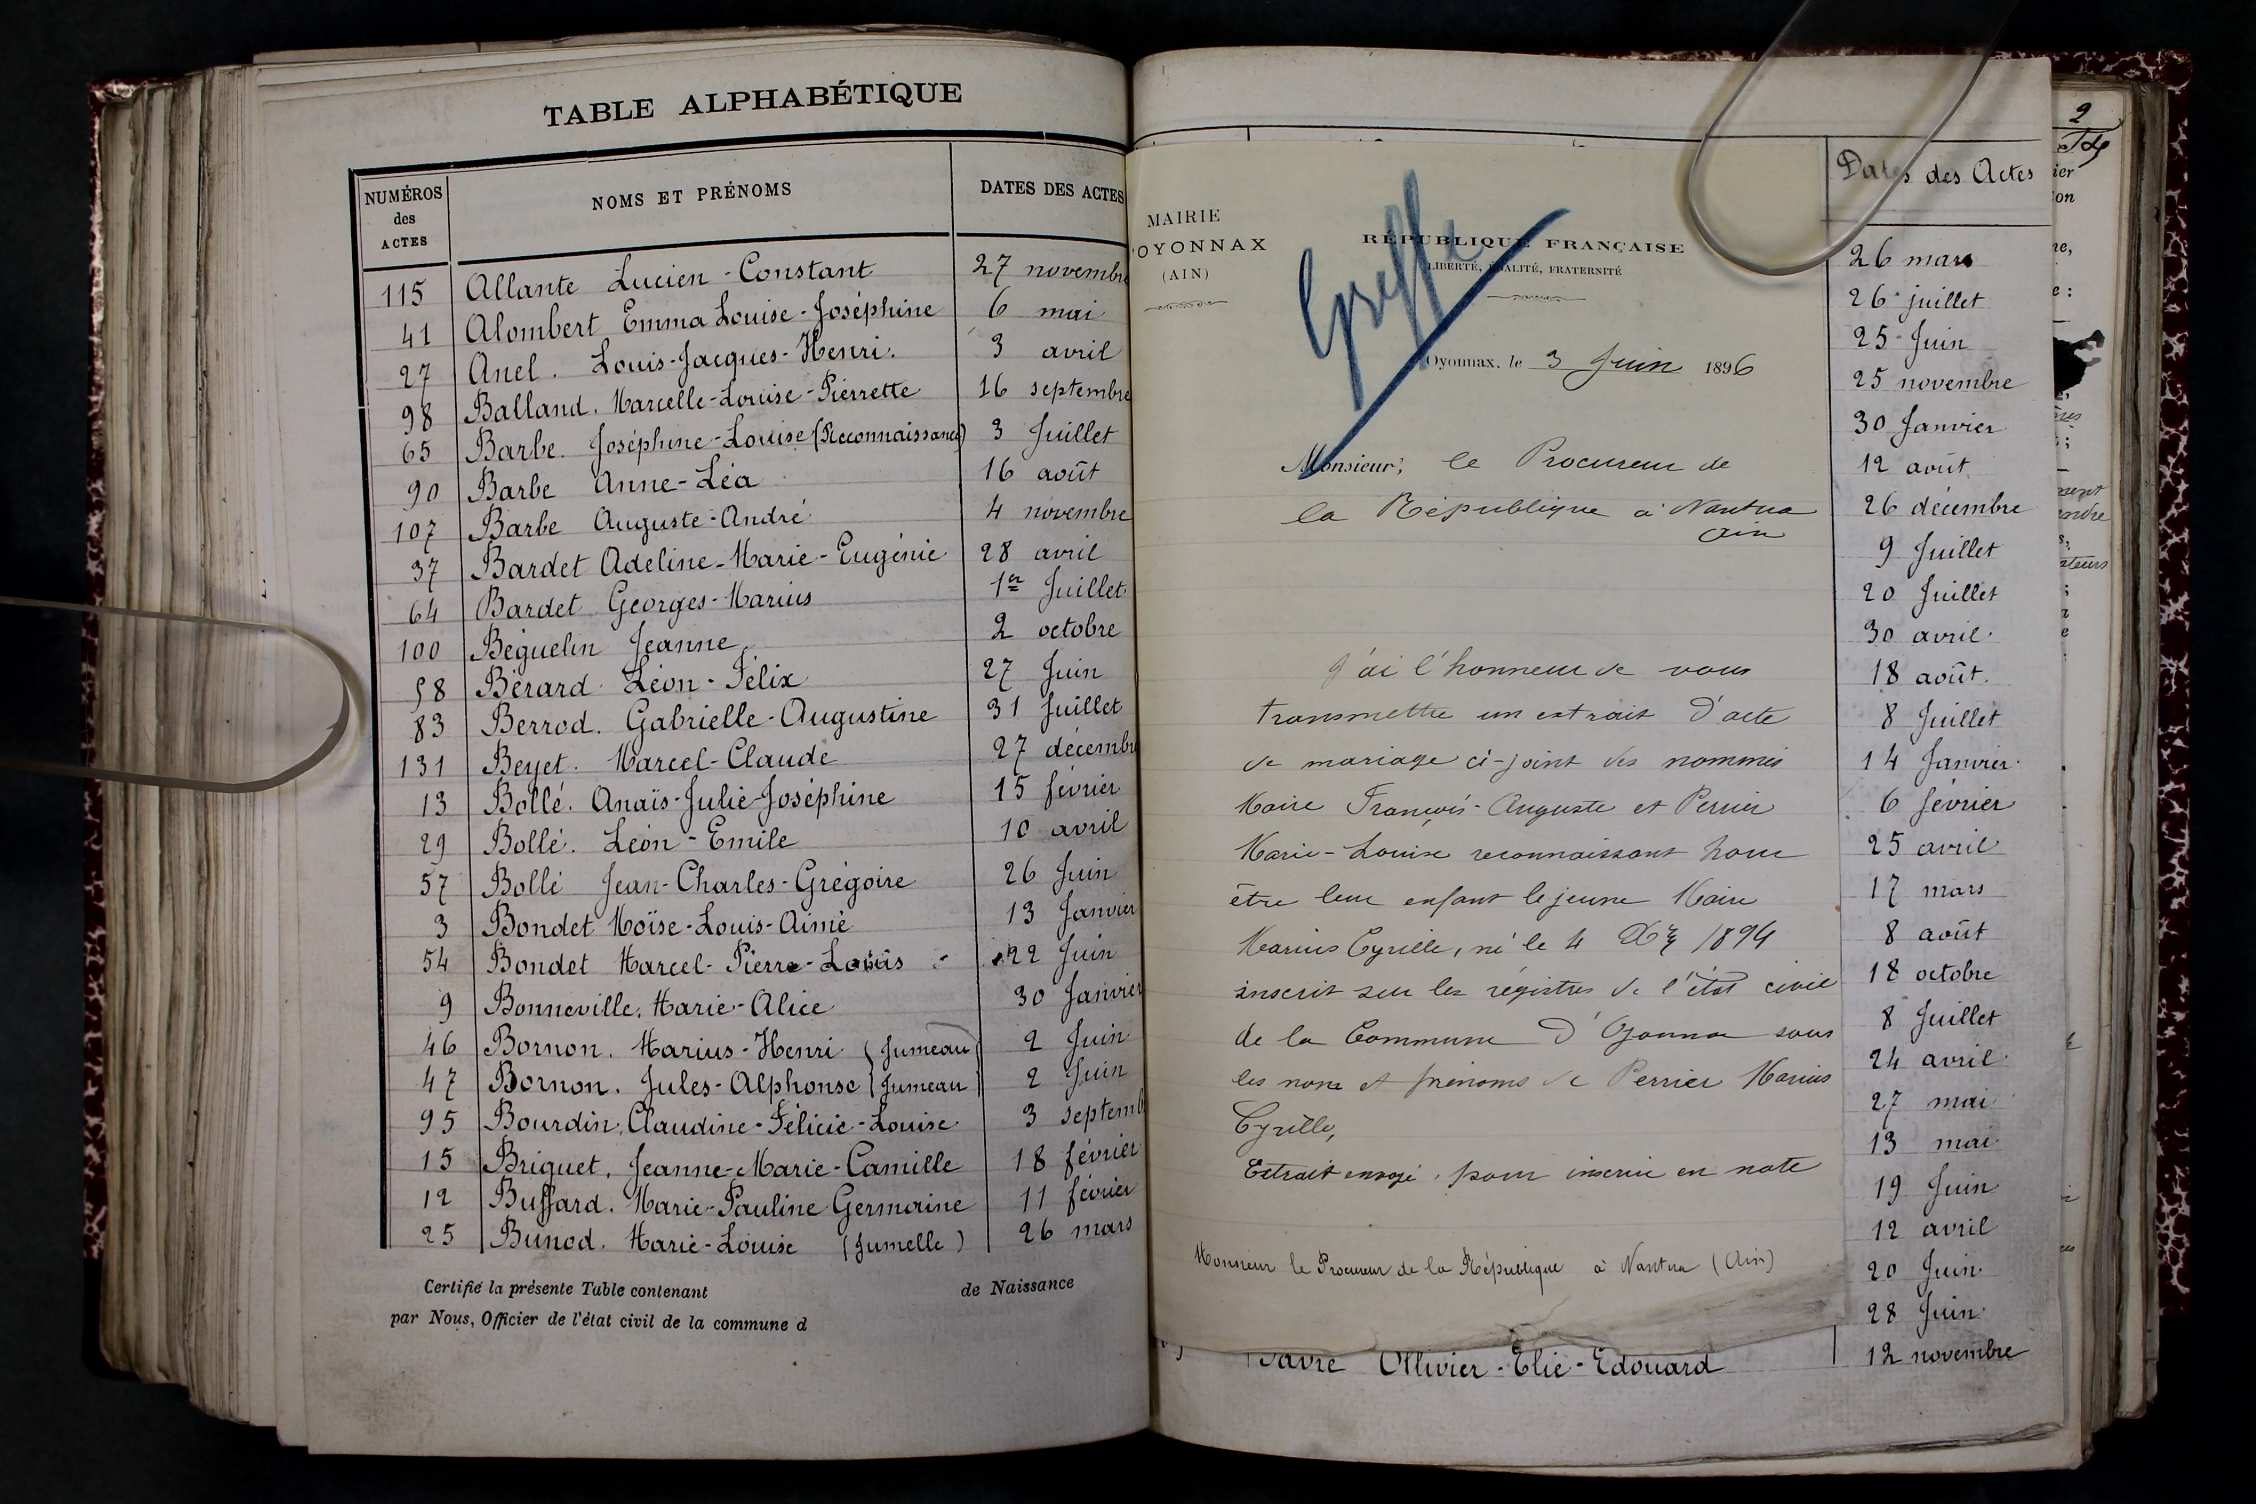 TABLE ALPHABÉTIQUE
NUMÉROS des ACTES NOMS ET PRÉNOMS DATES DES ACTES
115 Allante Lucien-Constant 27 novembre
41 Alombert Emma Louise-Joséphine 6 mai
27 Anel. Louis-Jacques-Henri. 3 avril
98 Balland. Marcelle-Louise-Pierrette 16 septembre
65 Barbe. Joséphine-Louise (Reconnaissance) 3 Juillet
90 Barbe Anne-Léa 16 août
107 Barbe Auguste-André 4 novembre
37 Bardet Adeline-Marie-Eugénie 28 avril
64 Bardet Georges-Marius 1er Juillet
100 Béguelin Jeanne 2 octobre
58 Bérard Léon-Félix 27 Juin
83 Berrod. Gabrielle-Augustine 31 Juillet
131 Beyet. Marcel-Claude 27 décembre
13 Bollé. Anaïs-Julie-Joséphine 15 février
29 Bollé. Léon-Emile 10 avril
57 Bollé Jean-Charles-Grégoire 26 Juin
3 Bondet Moïse-Louis-Aimé 13 Janvier
54 Bondet Marcel-Pierre-Louis 22 Juin
9 Bonneville. Marie-Alice 30 Janvier
46 Bornon. Marius-Henri (Jumeau) 2 Juin
47 Bornon. Jules-Alphonse (Jumeau) 2 Juin
95 Bourdin, Claudine-Félicie-Louise 3 septemb
15 Briguet. Jeanne-Marie-Camille 18 février
12 Buffard. Marie-Pauline Germaine 11 février
25 Bunod. Marie-Louise (Jumelle) 26 mars
Certifié la présente Table contenant de Naissance
par Nous, Officier de l'état civil de la commune d
MAIRIE
D'OYONNAX
(AIN)
Greffe
RÉPUBLIQUE FRANÇAISE
LIBERTÉ, ÉGALITÉ, FRATERNITÉ
Oyonnax, le 3 Juin 1896
Monsieur, le Procureur de
la République à Nantua
Ain
J'ai l'honneur de vous
transmettre un extrait d'acte
de mariage ci-joint des nommés
Maire François-Auguste et Perrier
Marie-Louise reconnaissant pour
être leur enfant le jeune Maire
Marius Cyrille, né le 4 Xbre 1894
inscrit sur les régistres de l'état civil
de la Commune d'Oyonnax sous
les nom et prénoms de Perrier Marius
Cyrille,
Extrait envoyé pour inscrire en note
Monsieur le Procureur de la République à Nantua (Ain)
Favre Ollivier-Elie-Edouard
Dates des Actes
26 mars
26 juillet
25 Juin
25 novembre
30 Janvier
12 août
26 décembre
9 Juillet
20 Juillet
30 avril
18 août
8 Juillet
14 Janvier
6 février
25 avril
17 mars
8 août
18 octobre
8 Juillet
24 avril
27 mai
13 mai
19 Juin
12 avril
20 Juin
28 Juin
12 novembre
2